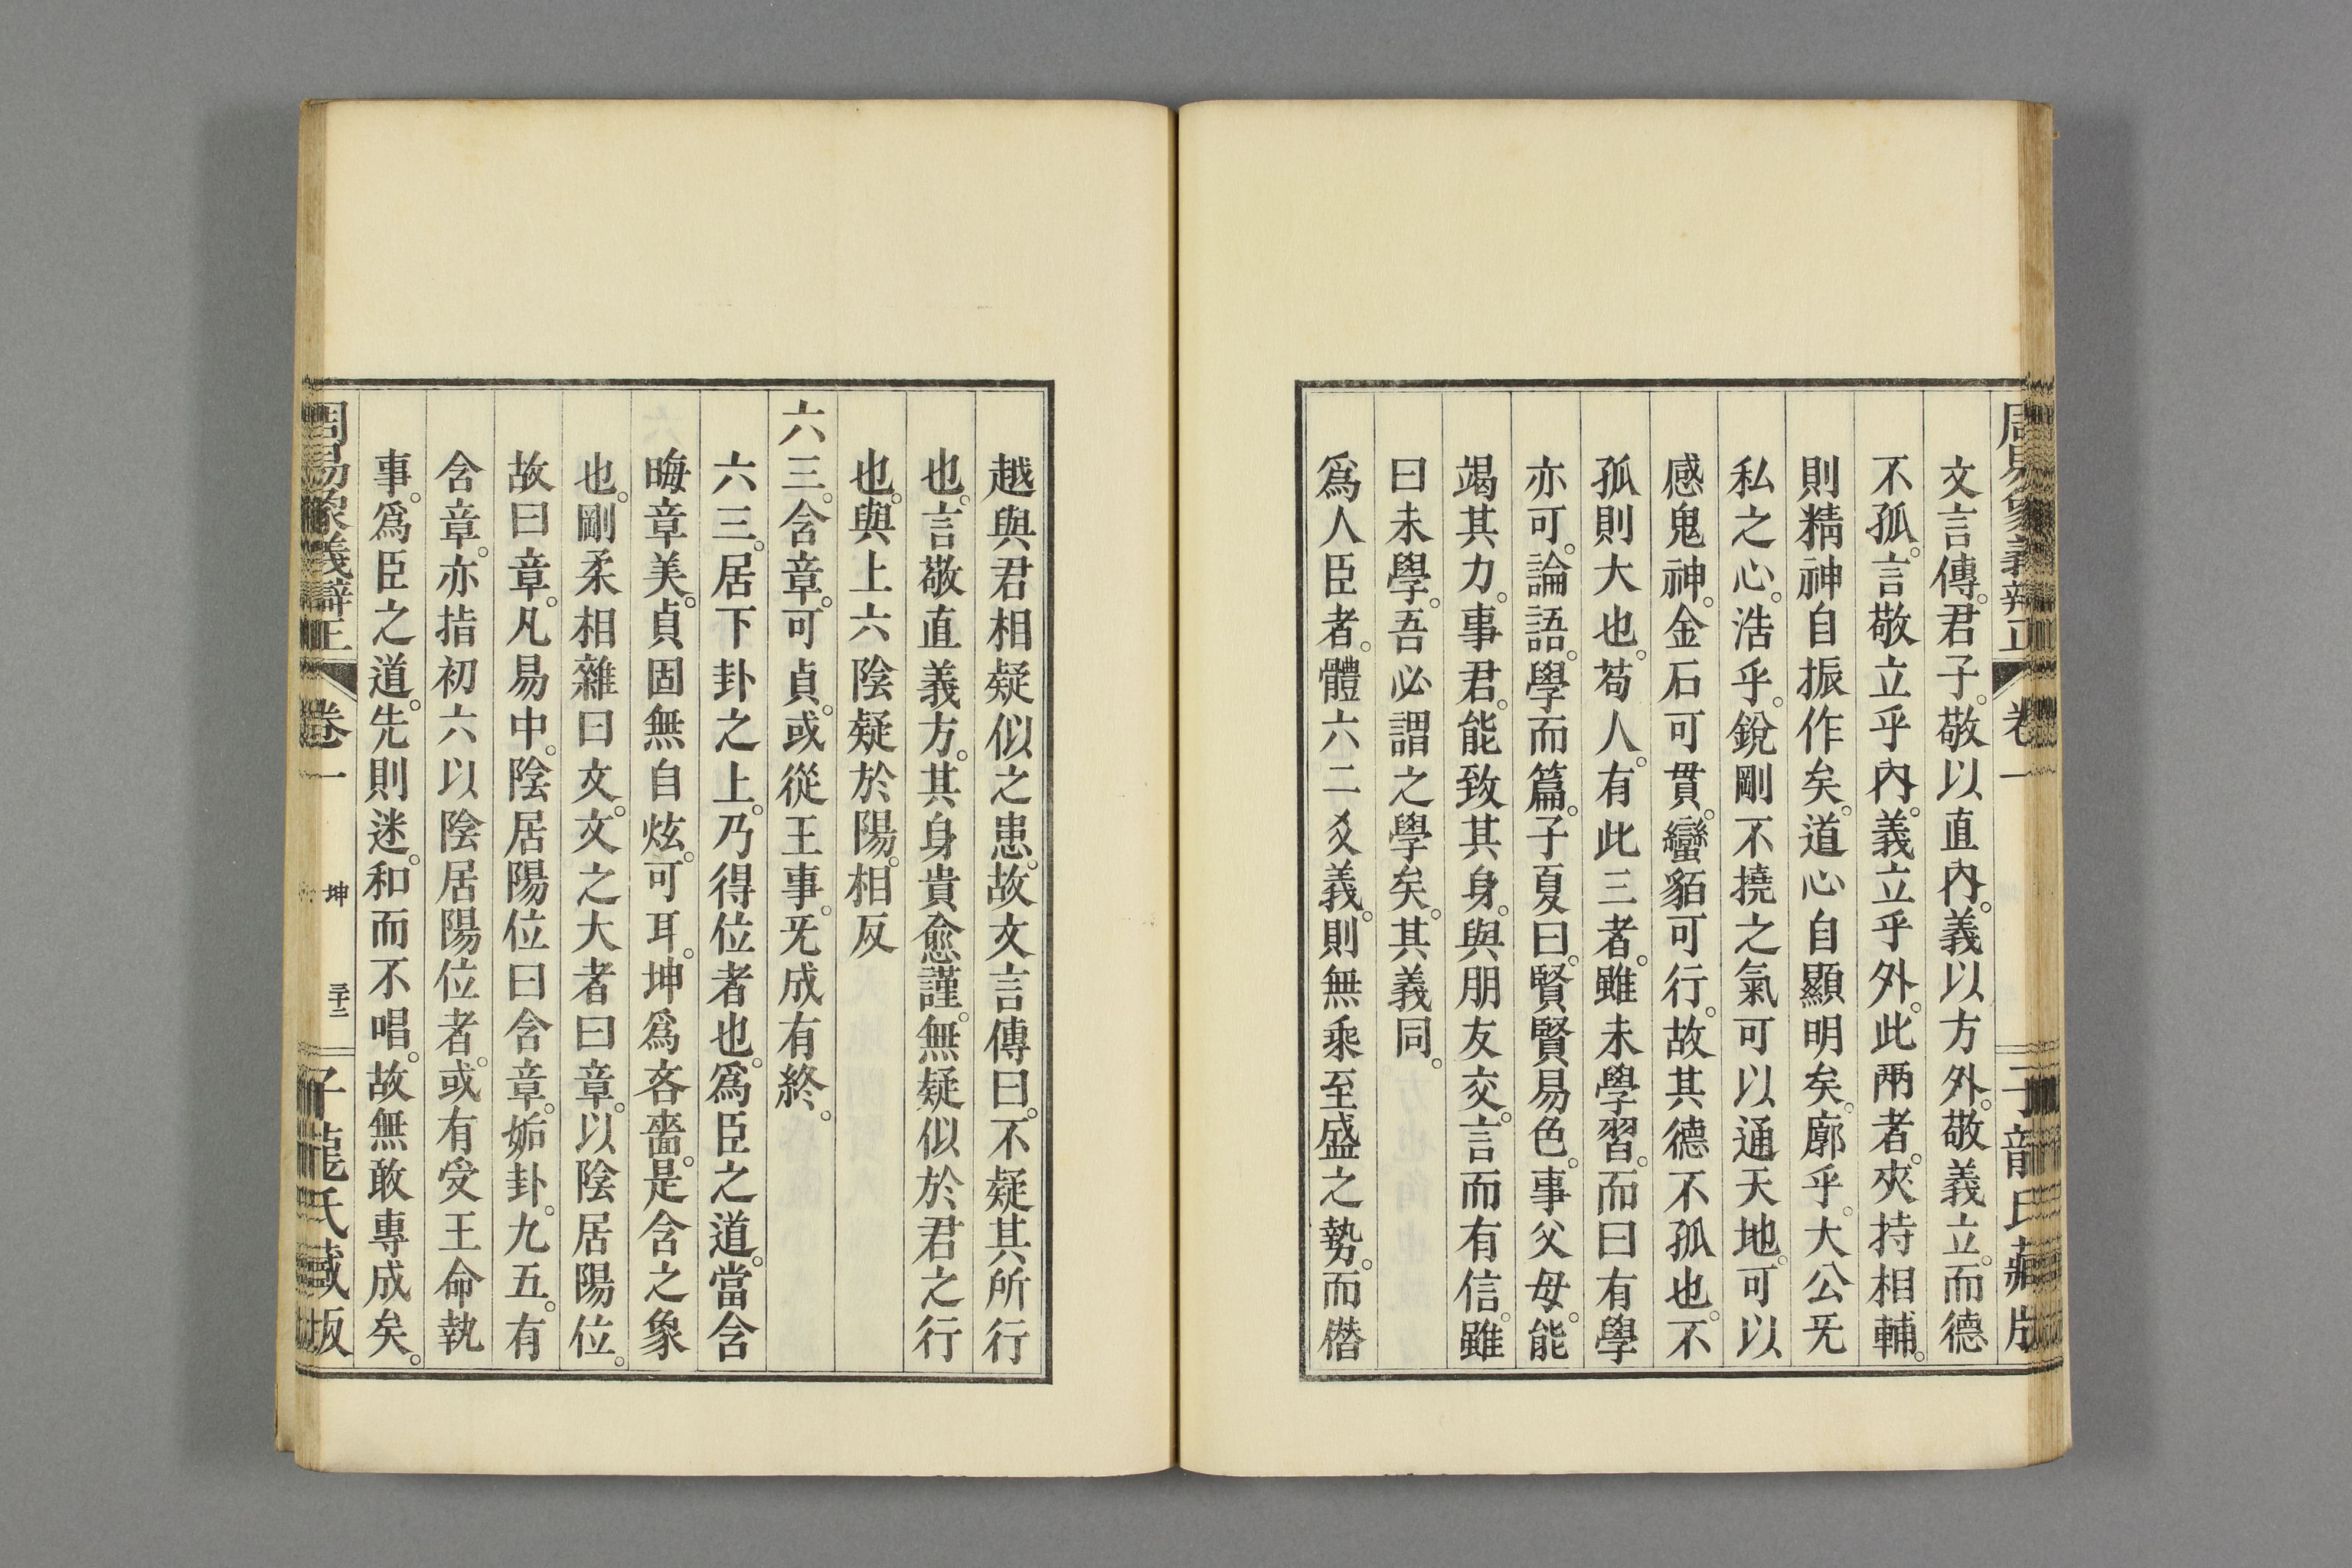 周易象義辯正 卷一 子龍氏藏版
文言傳。君子。敬以直內。義以方外。敬義立。而德
不孤。言敬立乎內。義立乎外。此兩者。夾持相輔。
則精神自振作矣。道心自顯明矣。廓乎。大公旡
私之心。浩乎。銳剛不撓之氣可以通天地。可以
感鬼神。金石可貫。蠻貊可行。故其德不孤也。不
孤則大也。苟人。有此三者。雖未學習。而曰有學
亦可。論語。學而篇。子夏曰。賢賢易色。事父母。能
竭其力。事君。能致其身。與朋友交。言而有信。雖
曰未學。吾必謂之學矣。其義同。
爲人臣者。體六二爻義。則無乘至盛之勢。而僭
越與君相疑似之患。故文言傳曰。不疑其所行
也。言敬直義方。其身貴愈謹。無疑似於君之行
也。與上六陰疑於陽。相反
六三。含章。可貞。或從王事。旡成有終。
六三。居下卦之上。乃得位者也。爲臣之道。當含
晦章美。貞固無自炫。可耳。坤爲吝嗇。是含之象
也。剛柔相雜曰文。文之大者曰章。以陰居陽位。
故曰章。凡易中。陰居陽位曰含章。姤卦。九五。有
含章。亦指初六以陰居陽位者。或有受王命執
事。爲臣之道。先則迷。和而不唱。故無敢專成矣。
周易象義辯正 卷一 坤 三十二 子龍氏藏版